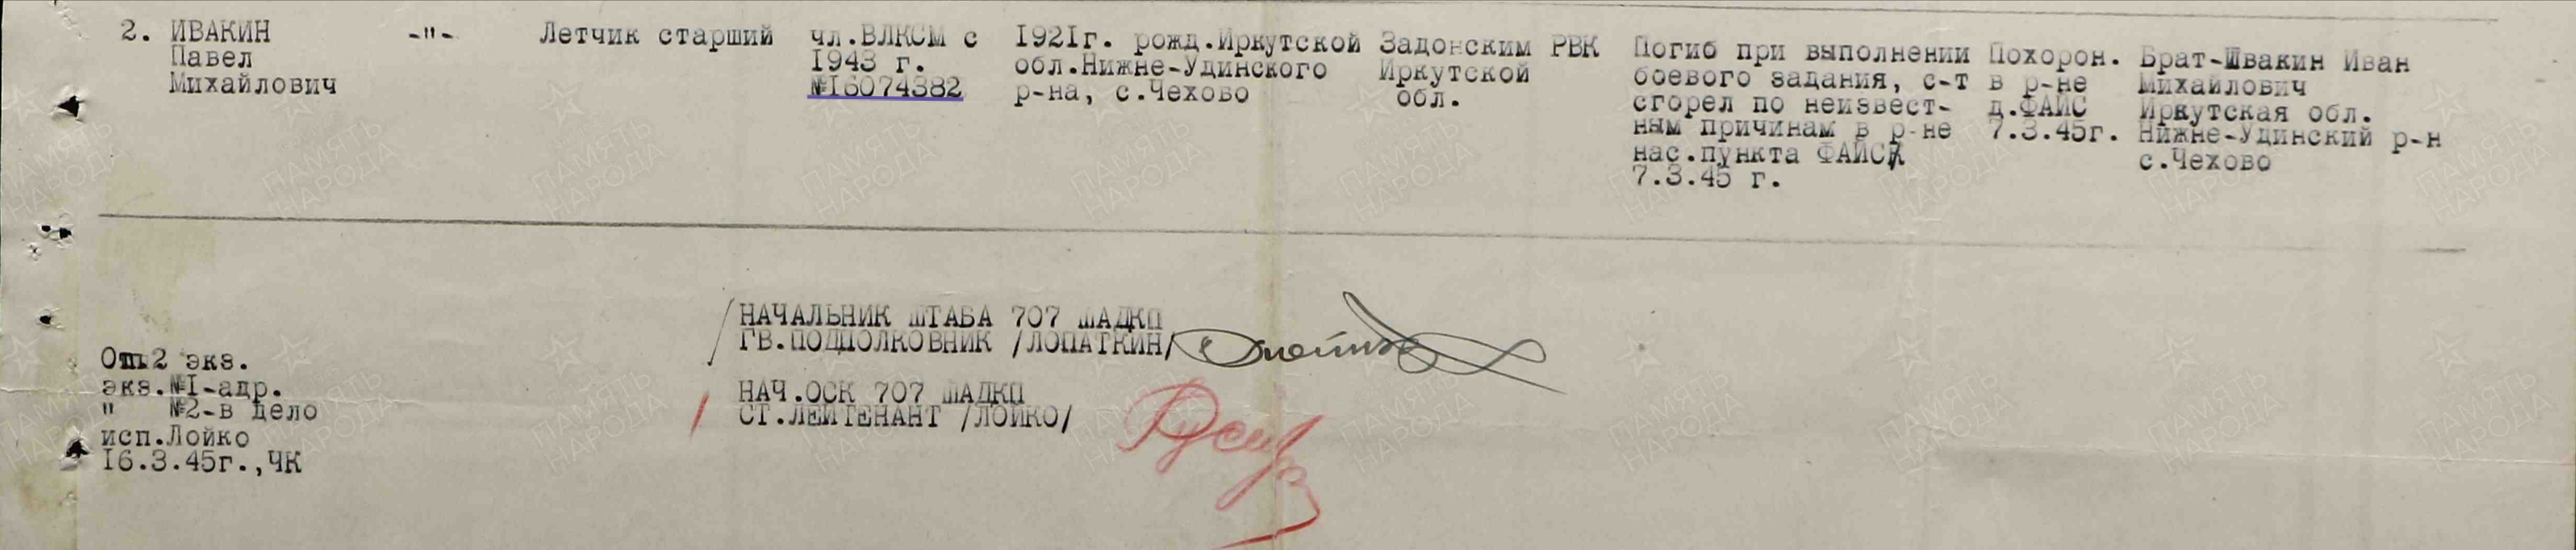 2. ИВАКИН
Павел
Михайлович
-"-
Летчик старший
чл.ВЛКСМ с
1943 г.
№I6074382
I92Iг. рожд.Иркутской
обл.Нижне-Удинского
р-на, с.Чехово
Задонским РВК
Иркутской
обл.
Погиб при выполнении
боевого задания, с-т
сгорел по неизвест-
ным причинам в р-не
нас.пункта ФАЙСК
7.3.45 г.
Похорон.
в р-не
д.ФАЙС
7.3.45г.
Брат-Швакин Иван
Михайлович
Иркутская обл.
Нижне-Удинский р-н
с.Чехово
НАЧАЛЬНИК ШТАБА 707 ШАДКП
ГВ.ПОДПОЛКОВНИК /ЛОПАТКИН/
НАЧ.ОСК 707 ШАДКП
СТ.ЛЕЙТЕНАНТ /ЛОЙКО/
Отп 2 экз.
экз.№I-адр.
" №2-в дело
исп.Лойко
I6.3.45г.,ЧК
ПАМЯТЬ
НАРОДА